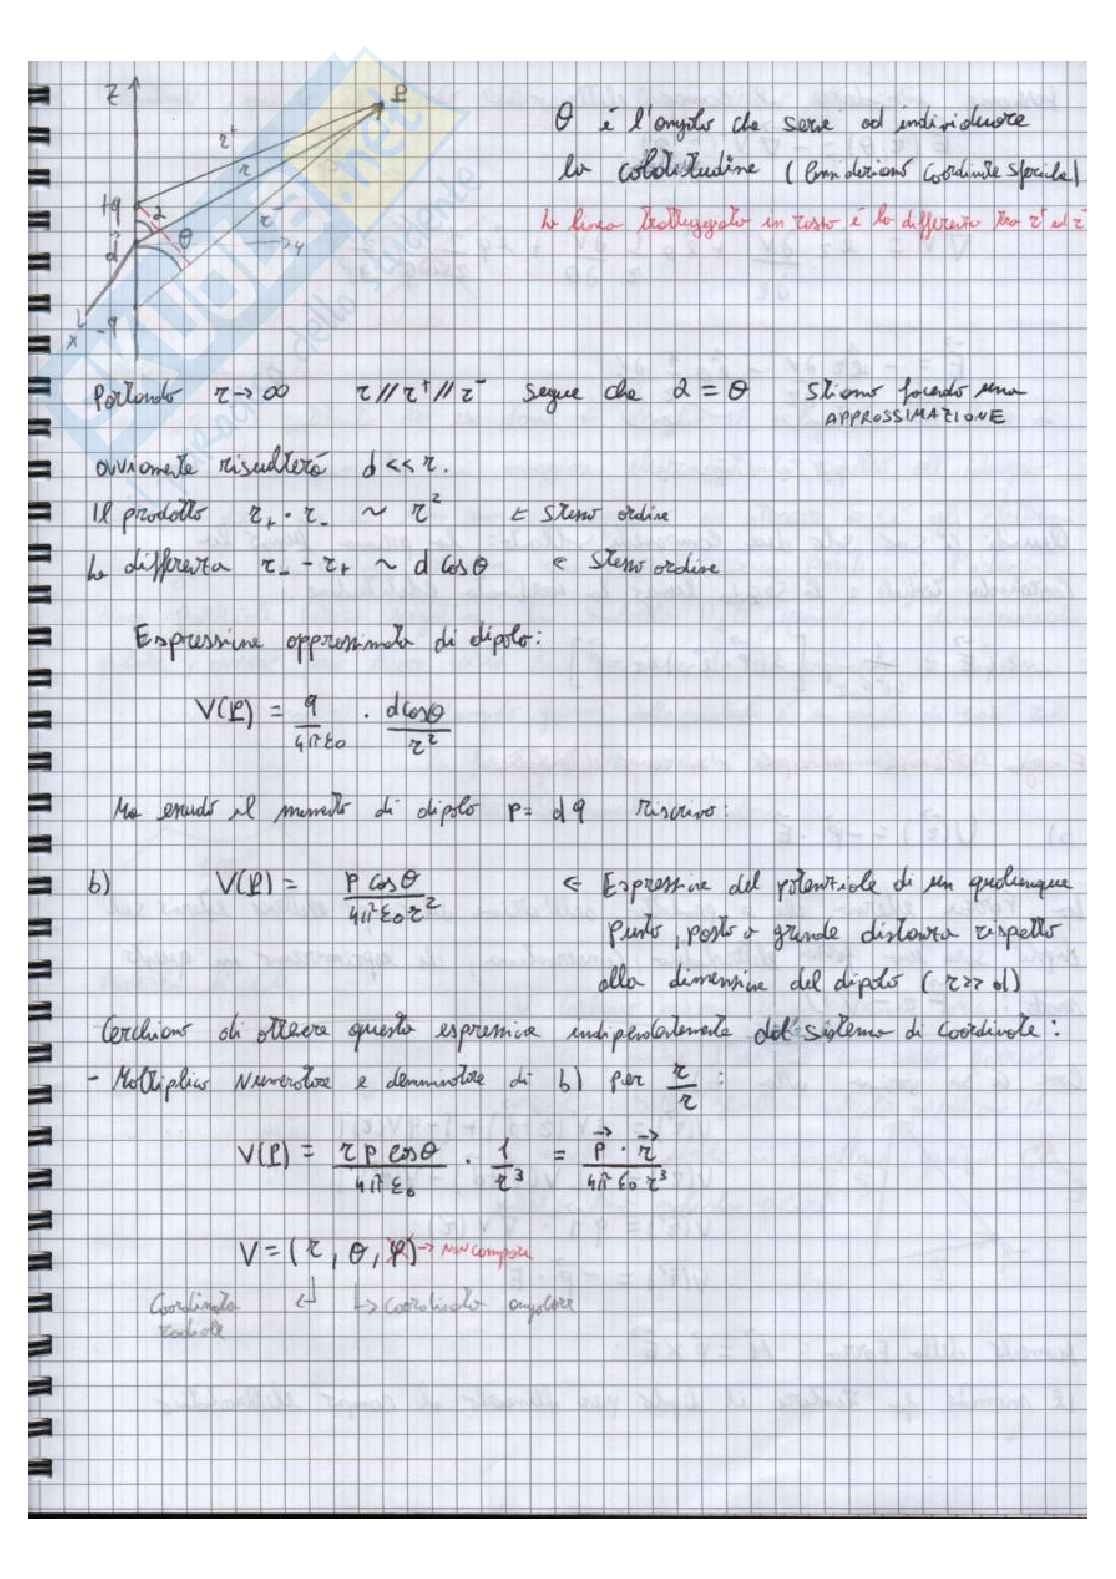 Z
P
r⁺
r
+q
α
r⁻
θ
y
d
x
-q
SKUOLA.net
θ è l'angolo che serve ad individuare
la colatitudine (Consideriamo coordinate sferiche)
la linea tratteggiata in rosso è la differenza tra r⁺ ed r⁻
Portando r→∞ r // r⁺ // r⁻ segue che α = θ Stiamo facendo una
APPROSSIMAZIONE
ovviamente risulterà d << r.
Il prodotto r₊ · r₋ ~ r² ∈ stesso ordine
La differenza r₋ - r₊ ~ d cosθ ∈ stesso ordine
Espressione approssimata di dipolo:
V(P) = q/4πε₀ · dcosθ/r²
Ma essendo il momento di dipolo p = d q riscrivo:
b) V(P) = p cosθ/4π²ε₀r² ∈ Espressione del potenziale di un qualunque
punto, posto a grande distanza rispetto
alla dimensione del dipolo (r>> d)
Cerchiamo di ottenere questa espressione indipendentemente dal sistema di coordinate:
- Moltiplico Numeratore e denominatore di b) per r/r :
V(P) = r p cosθ/4πε₀ · 1/r³ = p⃗ · r⃗/4πε₀r³
V = (r, θ, φ) → non compare
Coordinata ↵ ↳ coordinata angolare
radiale